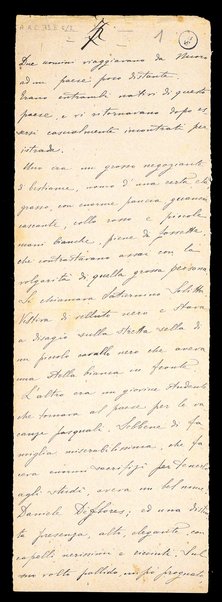 1
Due uomini viaggiavano da Nuoro
ad un paese poco distante.
Erano entrambi nativi di questo
paese, e vi ritornavano dopo es-
sersi casualmente incontrati per
istrada.
Uno era un grosso negoziante
di bestiame, uomo d'una certa età,
grasso, con enorme pancia, guancie
cascanti, collo rosso e piccole
mani bianche, piene di fossette,
che contrastavano assai con la
volgarità di quella grossa persona.
Si chiamava Saturnino
Vestiva di velluto nero e stava
a disagio sulla stretta sella di
un piccolo cavallo nero che aveva
una stella bianca in fronte.
L'altro era un giovine studente
che tornava al paese per le va-
canze pasquali. Sebbene di fa-
miglia miserabilissima, che fa-
ceva enormi sacrifizi per tenerlo
agli studi, aveva un bel nome,
Daniele Dejflores; ed una distin-
ta presenza, alto, elegante, con
capelli nerissimi e cresputi. Sul
suo volto pallido, un po' prognato